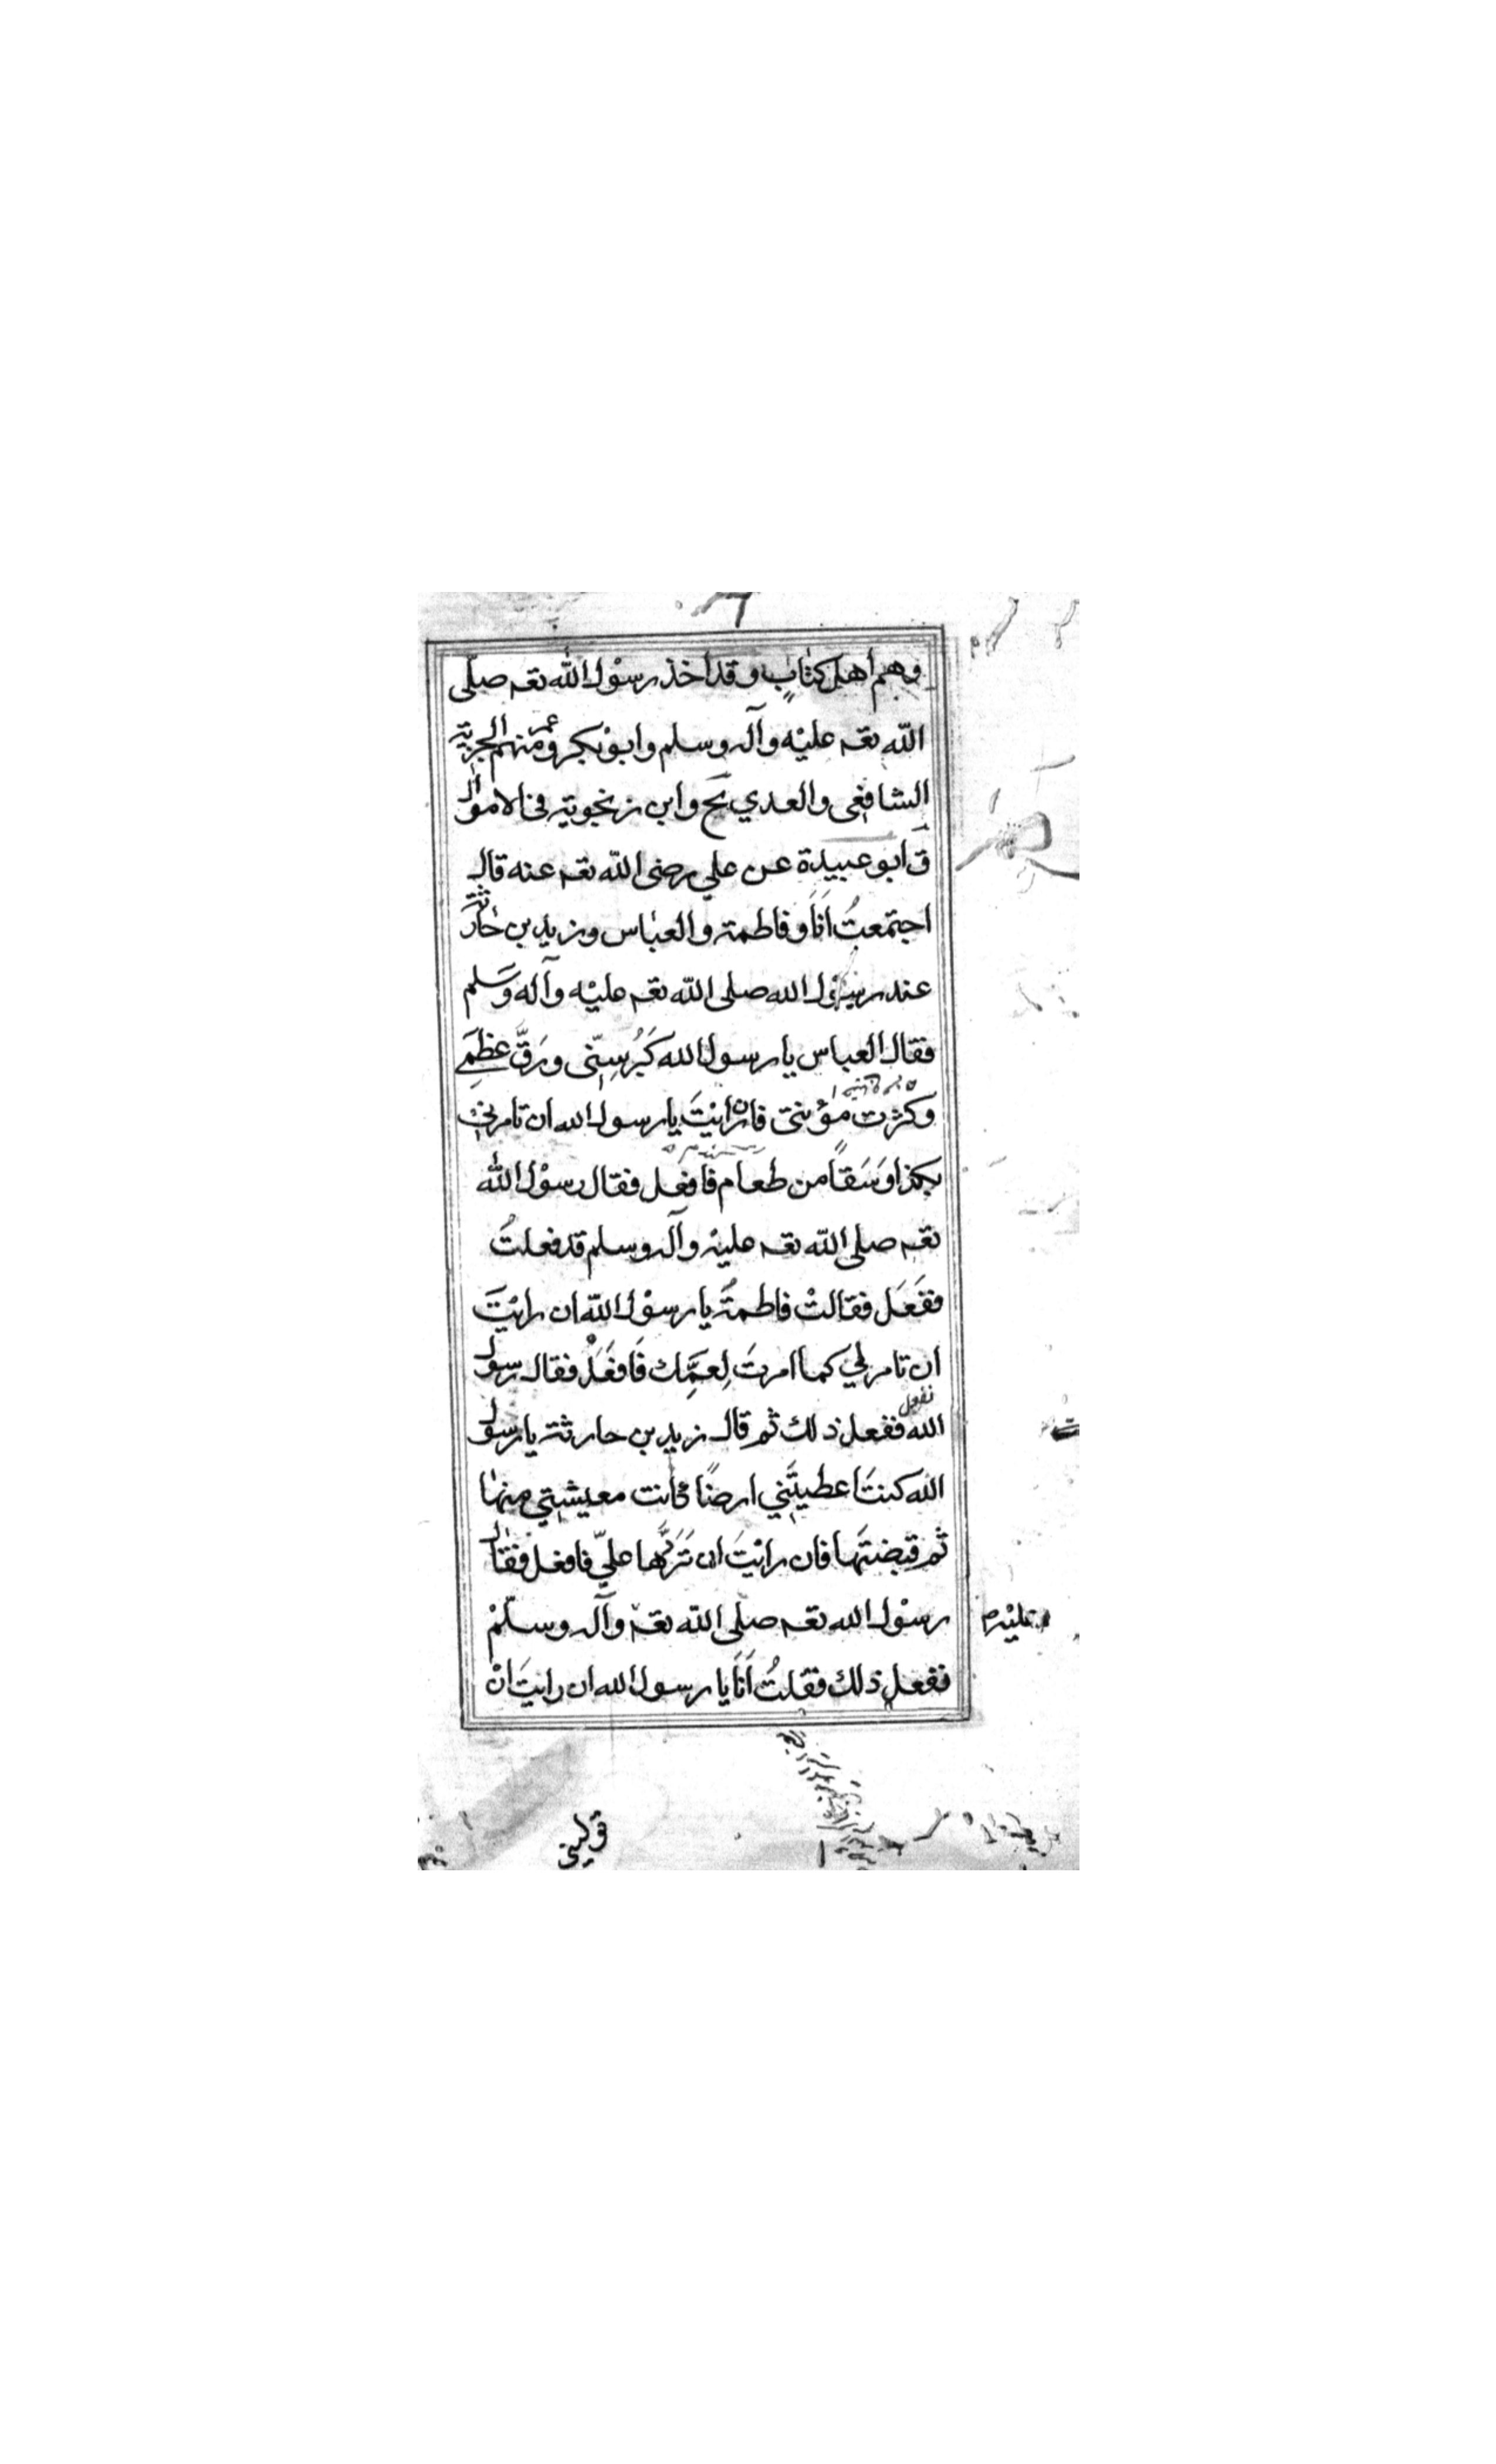 وهم اهل كتابٍ وقد اخذ رسوْل الله تعه صلّى
الله تعه عليْه وآله وسلم وابوْبكر وعمر منهم الجزية
الشافِعى والعدي يح وابن زنجويه فى الاموال
ق ابو عبيدة عن علي رضى الله تعه عنه قال
اجتمعتُ اَنَا وفاطمة والعباس وزيد بن حارثة
عند رسول الله صلى الله تعه عليْه وآله وَسَلم
فقال العباس يا رسول الله كَبُرَ سِنِّى ورَقَّ عظمِے
وكثرت مؤنتى فان رايْتَ يا رسول الله ان تامر لى
بكذا وَسَقاً من طعام فافعل فقال رسوْل الله
تعه صلى الله تعه عليْه وآله وسلم قد فعلتُ
ففَعَل فقالتْ فاطمةُ يا رسوْل الله ان رايْتَ
ان تامر لي كما امرتَ لِعَمِّك فَافعَلْ فقال رسول
الله نفعل ففعل ذلك ثم قال زيد بن حارثة يا رسول
الله كنتَ اعطيتَنِي ارضًا كانت معيشتِي منها
ثم قبضتَها فان رايْتَ ان تَرُدَّها عليّ فافعل فقال
رسوْل الله تعه صلّى الله تعه وآله وسلّمْ
عليْه م
ففعل ذلك فقلتُ اَنَا يا رسول الله ان رايتَ انْ
توليني